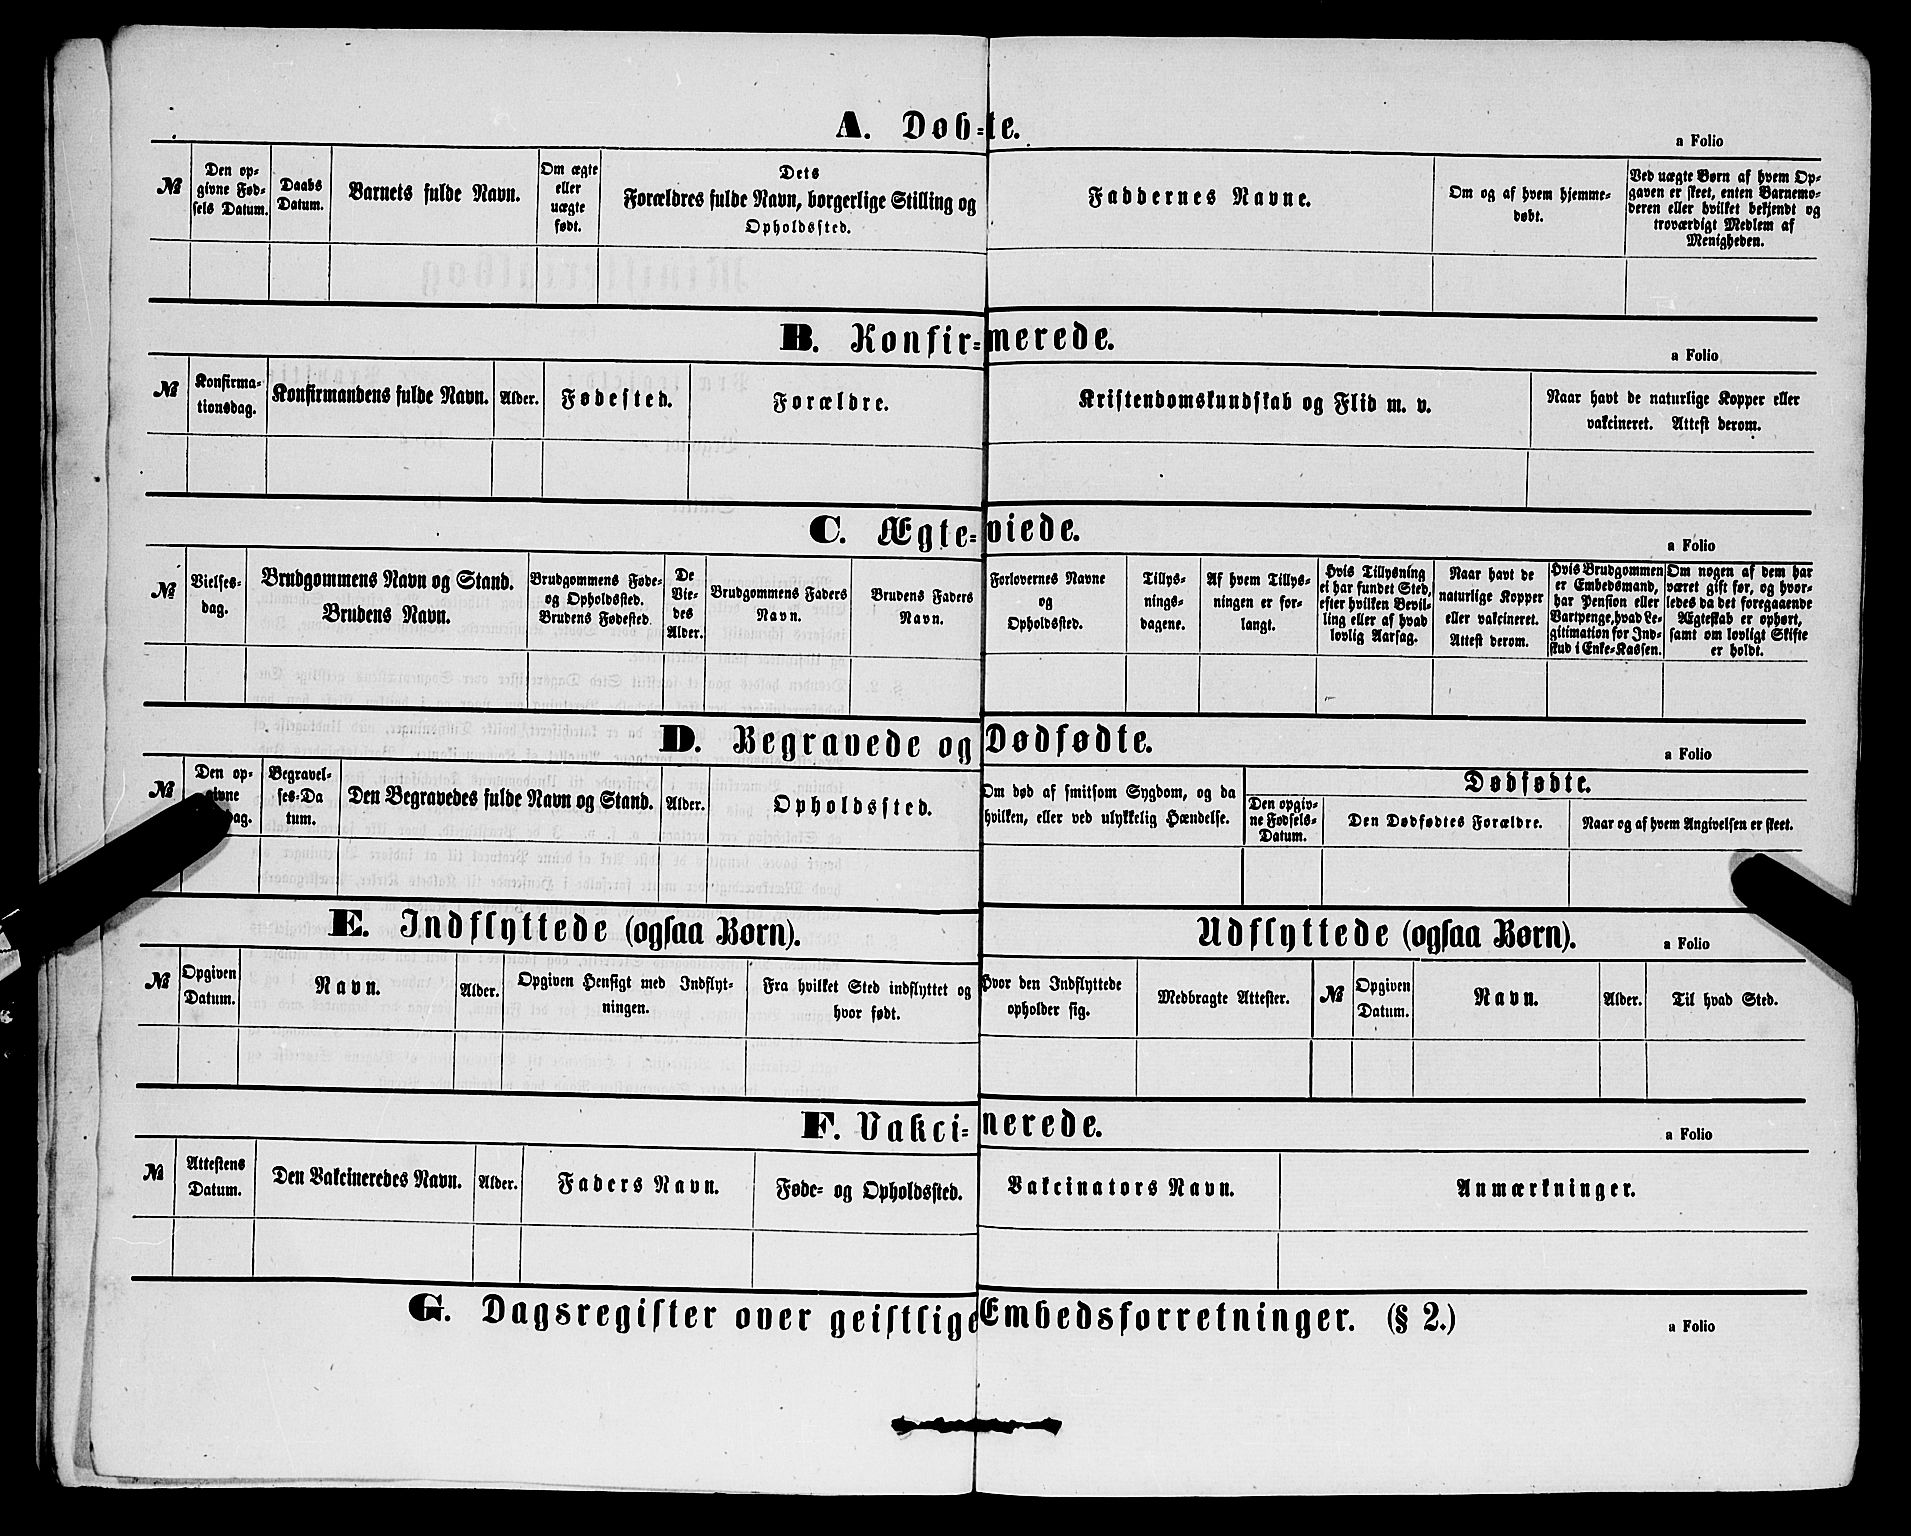 A. Døb-te.
a Folio
№
Den op-
givne Fød-
sels Datum.
Daabs
Datum.
Barnets fulde Navn.
Om ægte
eller
uægte
født.
Dets
Forældres fulde Navn, borgerlige Stilling og
Opholdssted.
Faddernes Navne.
Om og af hvem hjemme-
døbt.
Ved uægte Børn af hvem Op-
gaven er skeet, enten Barnemo-
deren eller hvilket bekjendt og
troværdigt Medlem af
Menigheden.
B. Konfir-merede.
a Folio
№
Konfirma-
tionsdag.
Konfirmandens fulde Navn.
Alder.
Fødested.
Forældre.
Kristendomskundskab og Flid m. v.
Naar havt de naturlige Kopper eller
vakcineret. Attest derom.
C. Ægte-viede.
a Folio
№
Vielses-
dag.
Brudgommens Navn og Stand.
Brudens Navn.
Brudgommens Føde-
og Opholdssted.
Brudens Fødested.
De
Vie-
des
Alder.
Brudgommens Faders
Navn.
Brudens Faders
Navn.
Forlovernes Navne
og
Opholdssted.
Tillys-
nings-
dagene.
Af hvem Tillys-
ningen er for-
langt.
Hvis Tillysning
ei har fundet Sted,
efter hvilken Bevil-
ling eller af hvad
lovlig Aarsag.
Naar havt de
naturlige Kopper
eller vakcineret.
Attest derom.
Hvis Brudgommen
er Embedsmand,
har Pension eller
Vartpenge, hvad Le-
gitimation for Ind-
skud i Enke-Kassen.
Om nogen af dem har
været gift før, og hvor-
ledes da det foregaaende
Ægteskab er ophørt,
samt om lovligt Skifte
er holdt.
D. Begravede og Dødfødte.
a Folio
№
Den op-
givne
dag.
Begravel-
ses-Da
tum.
Den Begravedes fulde Navn og Stand.
Alder.
Opholdssted.
Om død af smitsom Sygdom, og da
hvilken, eller ved ulykkelig Hændelse.
Dødfødte.
Den opgiv-
ne Fødsels-
Datum.
Den Dødfødtes Forældre.
Naar og af hvem Angivelsen er skeet.
E. Indflyttede (ogsaa Børn).
Udflyttede (ogsaa Børn).
a Folio
№
Opgiven
Datum.
Navn.
Alder.
Opgiven Hensigt med Indflyt-
ningen.
Fra hvilket Sted indflyttet og
hvor født.
Hvor den Indflyttede
opholder sig.
Medbragte Attester.
№
Opgiven
Datum.
Navn.
Alder.
Til hvad Sted.
F. Vakci-nerede.
a Folio
№
Attestens
Datum.
Den Vakcineredes Navn.
Alder.
Faders Navn.
Føde- og Opholdssted.
Vakcinators Navn.
Anmærkninger.
G. Dagsregister over geistlige Embedsforretninger. (§ 2.)
a Folio